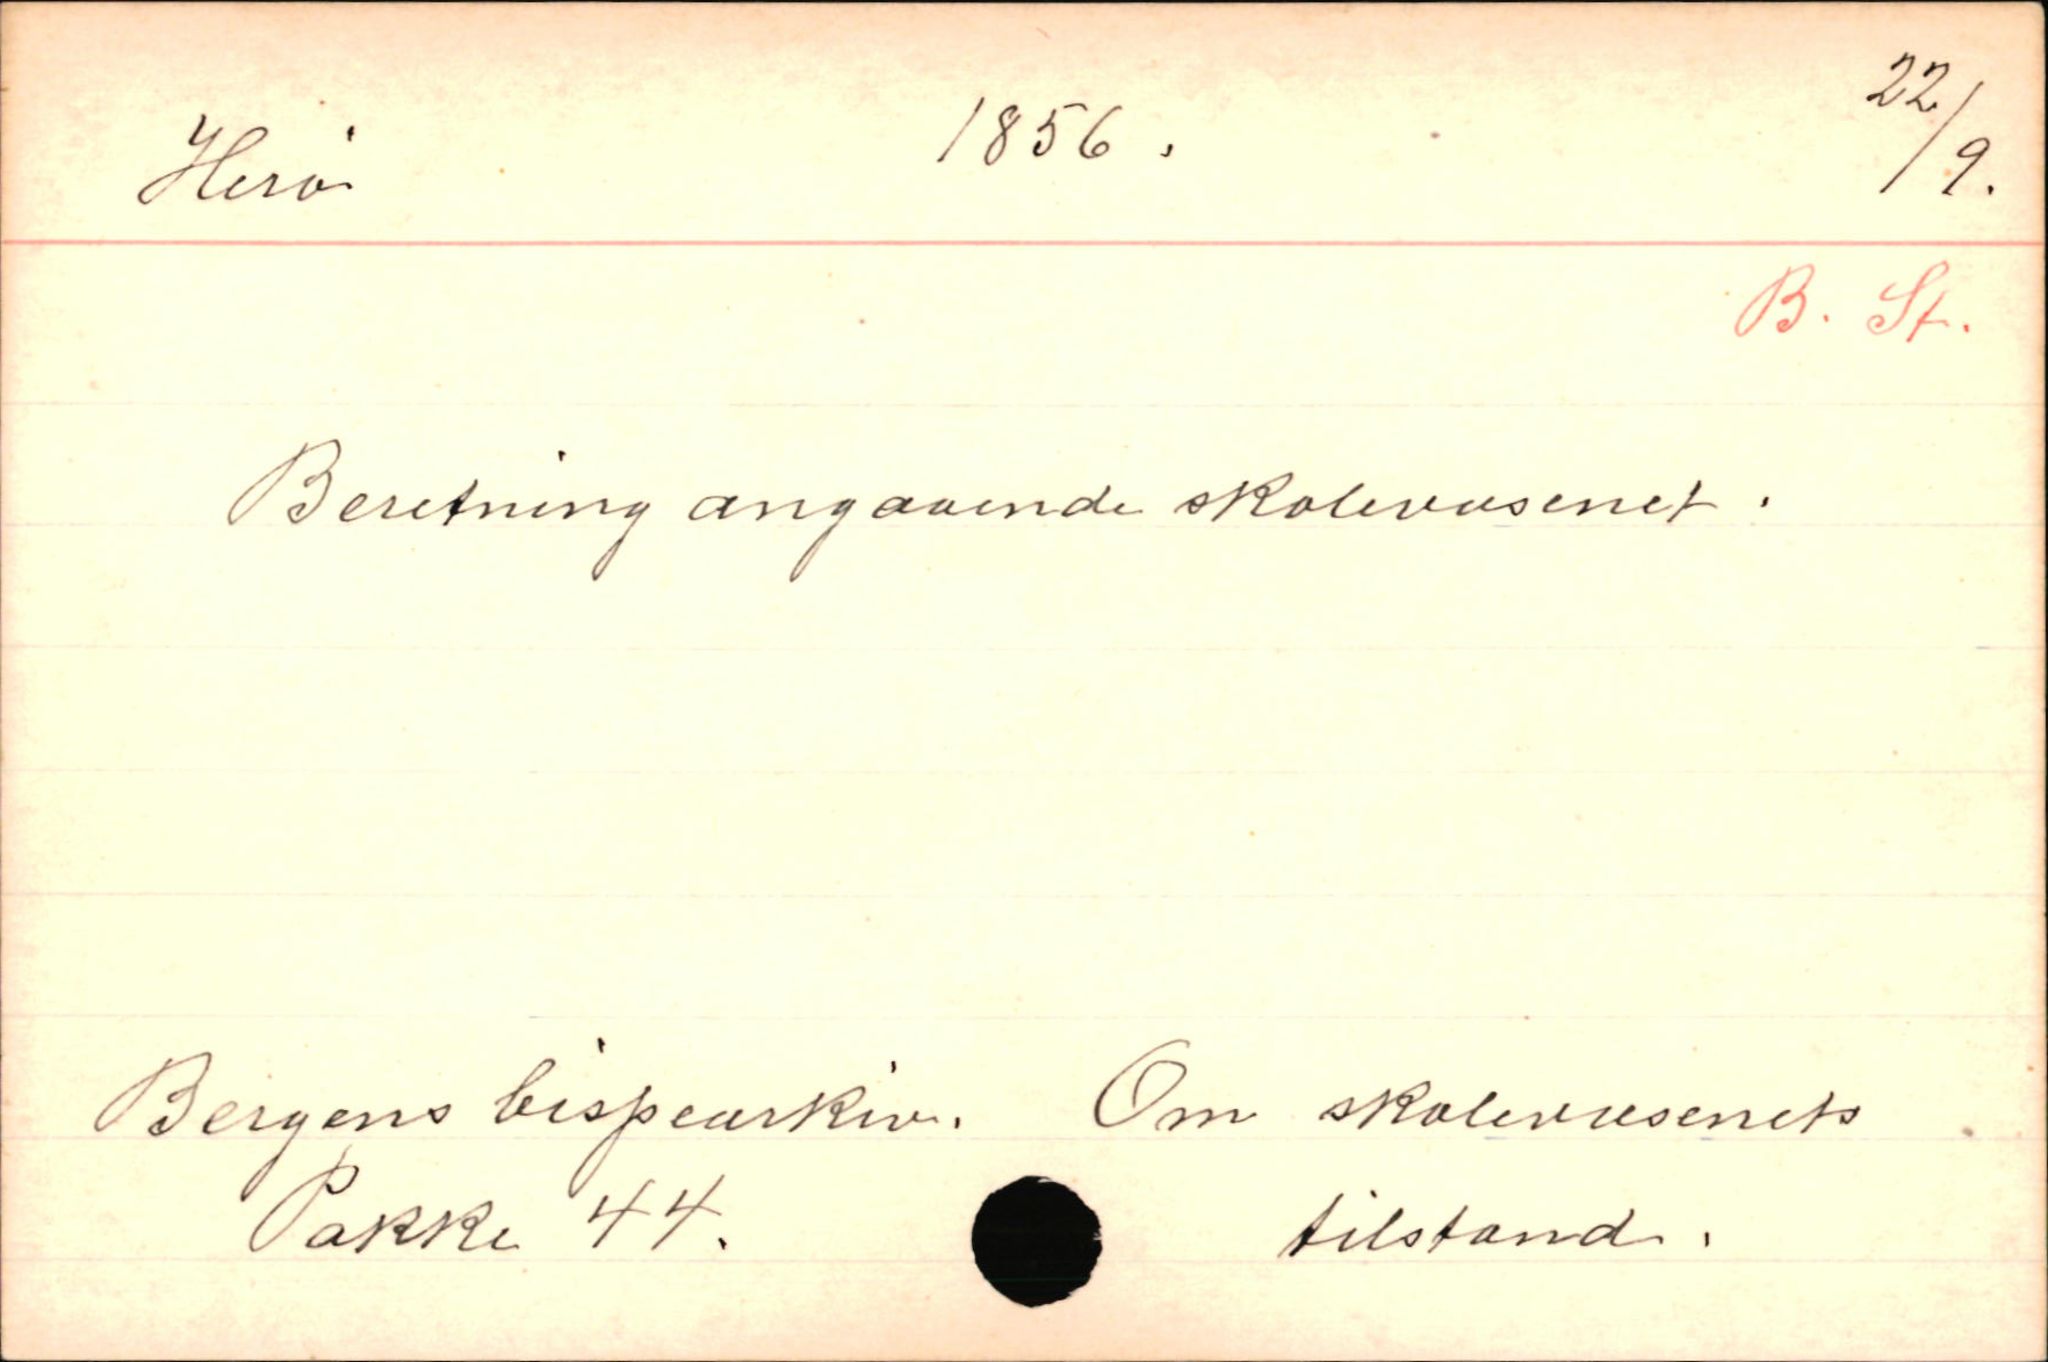 Herö 1856. 22/9.
B. St.
Beretning angaaende skolevæsenet.
Bergens bispearkiv. Om skolevæsenets
Pakke 44. tilstand.